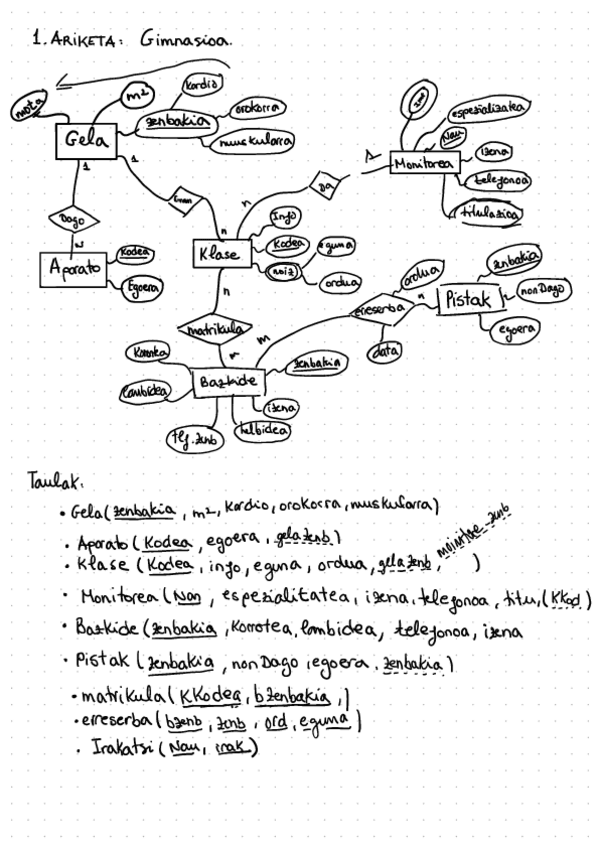 1. ARIKETA: Gimnasioa.
mota
m²
Kordio
zenbakia
orokorra
muskularra
Gela
1
1
Dago
Aparato
Kodea
Egoera
n
Klase
n
n
Info
Kodea
noiz
eguna
ordua
1
Monitorea
espezializatea
Nan
izena
telefonoa
titulazioa
matrikula
m
m
erreserba
ordua
data
n
Pistak
zenbakia
nonDago
egoera
Bazkide
Korotea
lanbidea
tlf.zenb
helbidea
izena
zenbakia
Taulak:
• Gela (zenbakia, m², Kardio, orokorra, muskularra)
• Aparato (Kodea, egoera, gelazenb)
• Klase (Kodea, info, eguna, ordua, gelazenb, )
• Monitorea (Nan, espezialitatea, izena, telefonoa, titu, (KKod)
• Bazkide (zenbakia, Korrotea, lanbidea, telefonoa, izena
• Pistak (zenbakia, nonDago, egoera, zenbakia)
• matrikula (KKodea, bzenbakia, )
• erreserba (bzenb, zenb, ord, eguna)
• Irakatsi (Nan, irak)